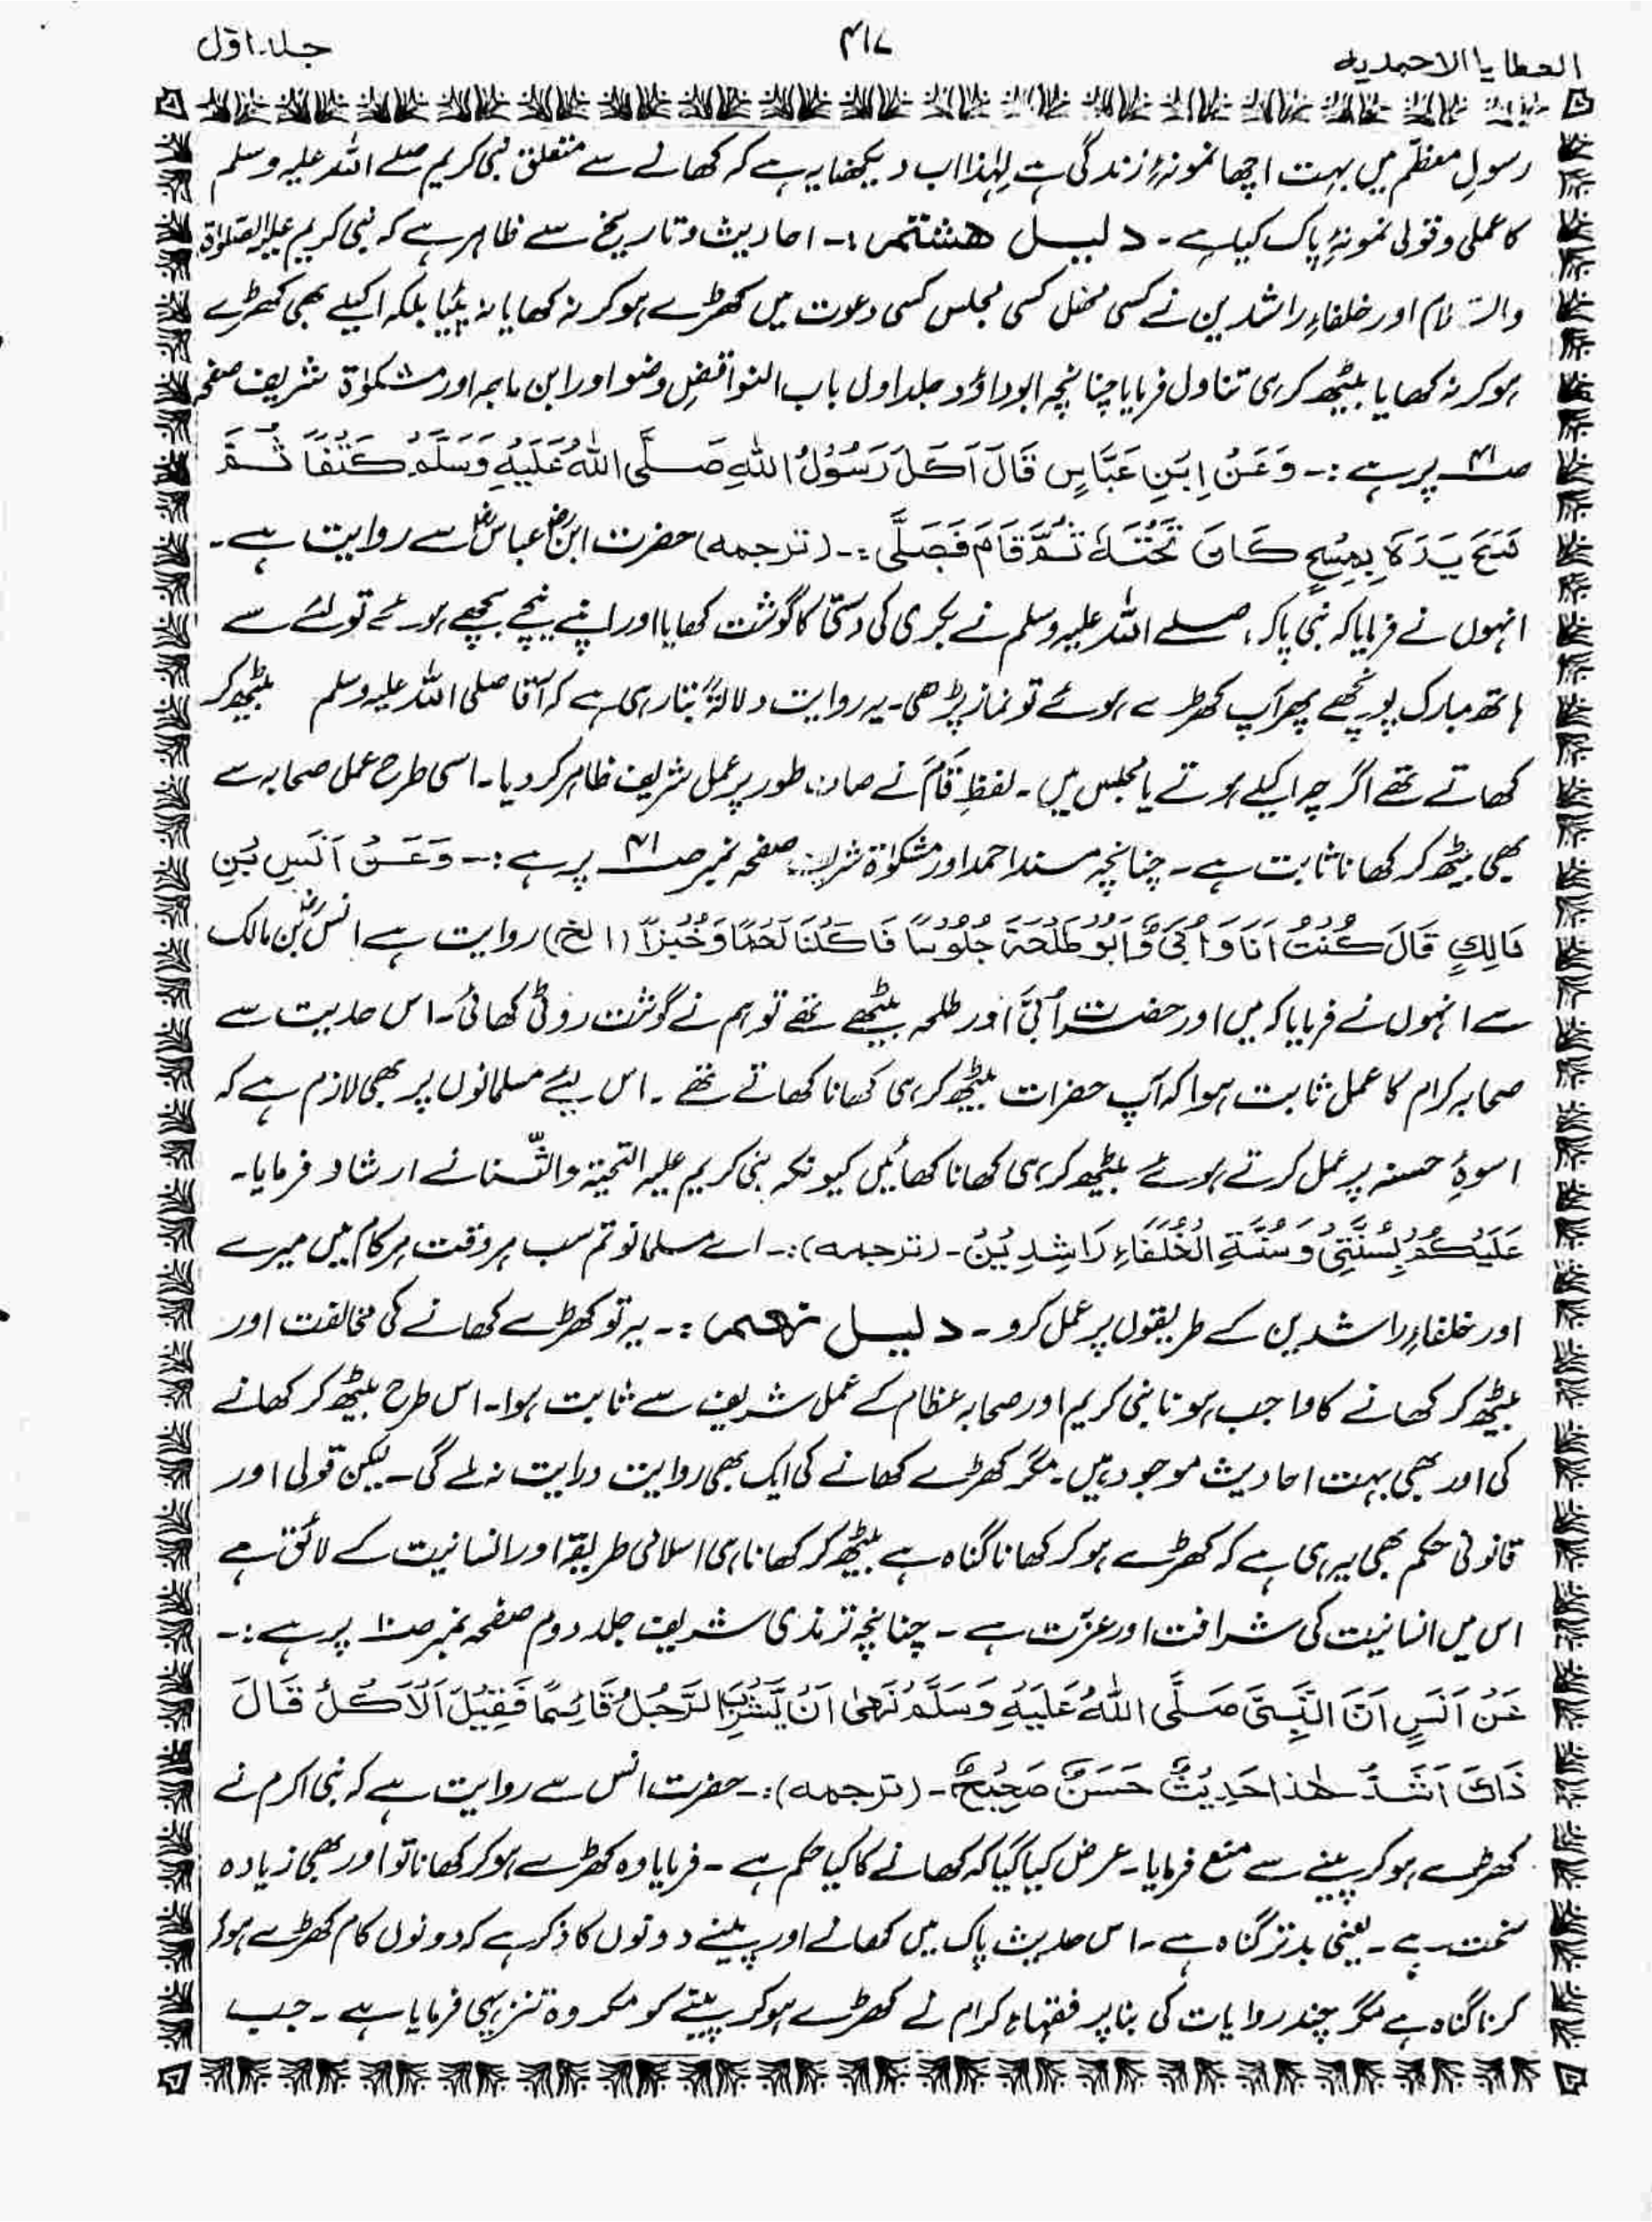 العطایا الاحمدیہ
۴۱۷
جلد اوّل
رسولِ معظّم میں بہت اچھا نمونۂ زندگی ہے لہٰذا اب دیکھنا یہ ہے کہ کھانے سے متعلق نبی کریم صلے اللہ علیہ وسلم
کا عملی و قولی نمونۂِ پاک کیا ہے۔ دلیل هشتم :۔ احادیث و تاریخ سے ظاہر ہے کہ نبی کریم علیہ الصلوٰۃ
والسّلام اور خلفاءِ راشدین نے کسی محفل کسی مجلس کسی دعوت میں کھڑے ہو کر نہ کھایا نہ پیّا بلکہ اکیلے بھی کھڑے
ہو کر نہ کھایا بیٹھ کر ہی تناول فرمایا چنانچہ ابو داؤد جلد اول باب النواقضِ وضو اور ابن ماجہ اور مشکوٰۃ شریف صفحہ
صـ۴۱ پر ہے :۔ وَعَنْ اِبْنِ عَبَّاسٍ قَالَ اَکَلَ رَسُوْلُ اللهِ صَلَّى اللهُ عَلَيْهِ وَسَلَّمَ کَتْفًا ثُمَّ
مَسَحَ يَدَهٗ بِمِسْحٍ كَانَ تَحْتَهٗ ثُمَّ قَامَ فَصَلَّى :۔ (ترجمہ) حضرت ابن عباسؓ سے روایت ہے۔
انہوں نے فرمایا کہ نبی پاک صلے اللہ علیہ وسلم نے بکری کی دستی کا گوشت کھایا اور اپنے نیچے بچھے ہوئے تولئے سے
ہاتھ مبارک پونچھے پھر آپ کھڑے ہوئے تو نماز پڑھی۔ یہ روایت دلالۃً بتا رہی ہے کہ آقا صلی اللہ علیہ وسلم بیٹھ کر
کھاتے تھے اگرچہ اکیلے ہوتے یا مجلس میں۔ لفظِ قَامَ نے صاف طور پر عمل شریف ظاہر کر دیا۔ اسی طرح عمل صحابہ سے
بھی بیٹھ کر کھانا ثابت ہے۔ چنانچہ مسند احمد اور مشکوٰۃ شریف صفحہ نمبر صـ۴۱ پر ہے :۔ وَعَنْ اَنَسِ بْنِ
مَالِكٍ قَالَ كُنْتُ اَنَا وَاُبَيٌّ وَّاَبُوْ طَلْحَةَ جُلُوْسًا فَاَكَلْنَا لَحْمًا وَخُبْزًا (الخ) روایت ہے انسؓ بن مالک
سے انہوں نے فرمایا کہ میں اور حضرت اُبیّ اور طلحہ بیٹھے تھے تو ہم نے گوشت روٹی کھائی۔ اس حدیت سے
صحابہ کرام کا عمل ثابت ہوا کہ آپ حضرات بیٹھ کر ہی کھانا کھاتے تھے۔ اس لیئے مسلمانوں پر بھی لازم ہے کہ
اسوۂِ حسنہ پر عمل کرتے ہوئے بیٹھ کر ہی کھانا کھائیں کیونکہ نبی کریم علیہ التحیۃ والثّنا نے ارشاد فرمایا۔
عَلَيْكُمْ بِسُنَّتِيْ وَسُنَّةِ الْخُلَفَاءِ رَاشِدِيْنَ۔ (ترجمہ):۔ اے مسلمانو تم سب ہر وقت ہر کام میں میرے
اور خلفاءِ راشدین کے طریقوں پر عمل کرو۔ دلیل نہم :۔ یہ تو کھڑے کھانے کی مخالفت اور
بیٹھ کر کھانے کا واجب ہونا نبی کریم اور صحابہ عظام کے عمل شریف سے ثابت ہوا۔ اس طرح بیٹھ کر کھانے
کی اور بھی بہت احادیث موجود ہیں۔ مگر کھڑے کھانے کی ایک بھی روایت درایت نہ ملے گی۔ لیکن قولی اور
قانونی حکم بھی یہ ہی ہے کہ کھڑے ہو کر کھانا گناہ ہے بیٹھ کر کھانا ہی اسلامی طریقہ اور انسانیت کے لائق ہے
اس میں انسانیت کی شرافت اور عزّت ہے۔ چنانچہ ترمذی شریف جلد دوم صفحہ نمبر صـ۱۰ پر ہے :۔
عَنْ اَنَسٍ اَنَّ النَّبِيَّ صَلَّى اللهُ عَلَيْهِ وَسَلَّمَ نَهٰى اَنْ يَّشْرِبَ الرَّجُلُ قَائِمًا فَقِيْلَ اَلْاَكْلُ قَالَ
ذَاكَ اَشَدُّ هٰذَا حَدِيْثٌ حَسَنٌ صَحِيْحٌ۔ (ترجمہ):۔ حضرت انس سے روایت ہے کہ نبی اکرم نے
کھڑے ہو کر پینے سے منع فرمایا۔ عرض کیا گیا کہ کھانے کا کیا حکم ہے۔ فرمایا وہ کھڑے ہو کر کھانا تو اور بھی زیادہ
سخت ہے۔ یعنی بدتر گناہ ہے۔ اس حدیث پاک میں کھانے اور پینے دونوں کا ذکر ہے کہ دونوں کام کھڑے ہو کر
کرنا گناہ ہے مگر چند روایات کی بنا پر فقہاءِ کرام نے کھڑے ہو کر پینے کو مکروہ تنزیہی فرمایا ہے۔ جب